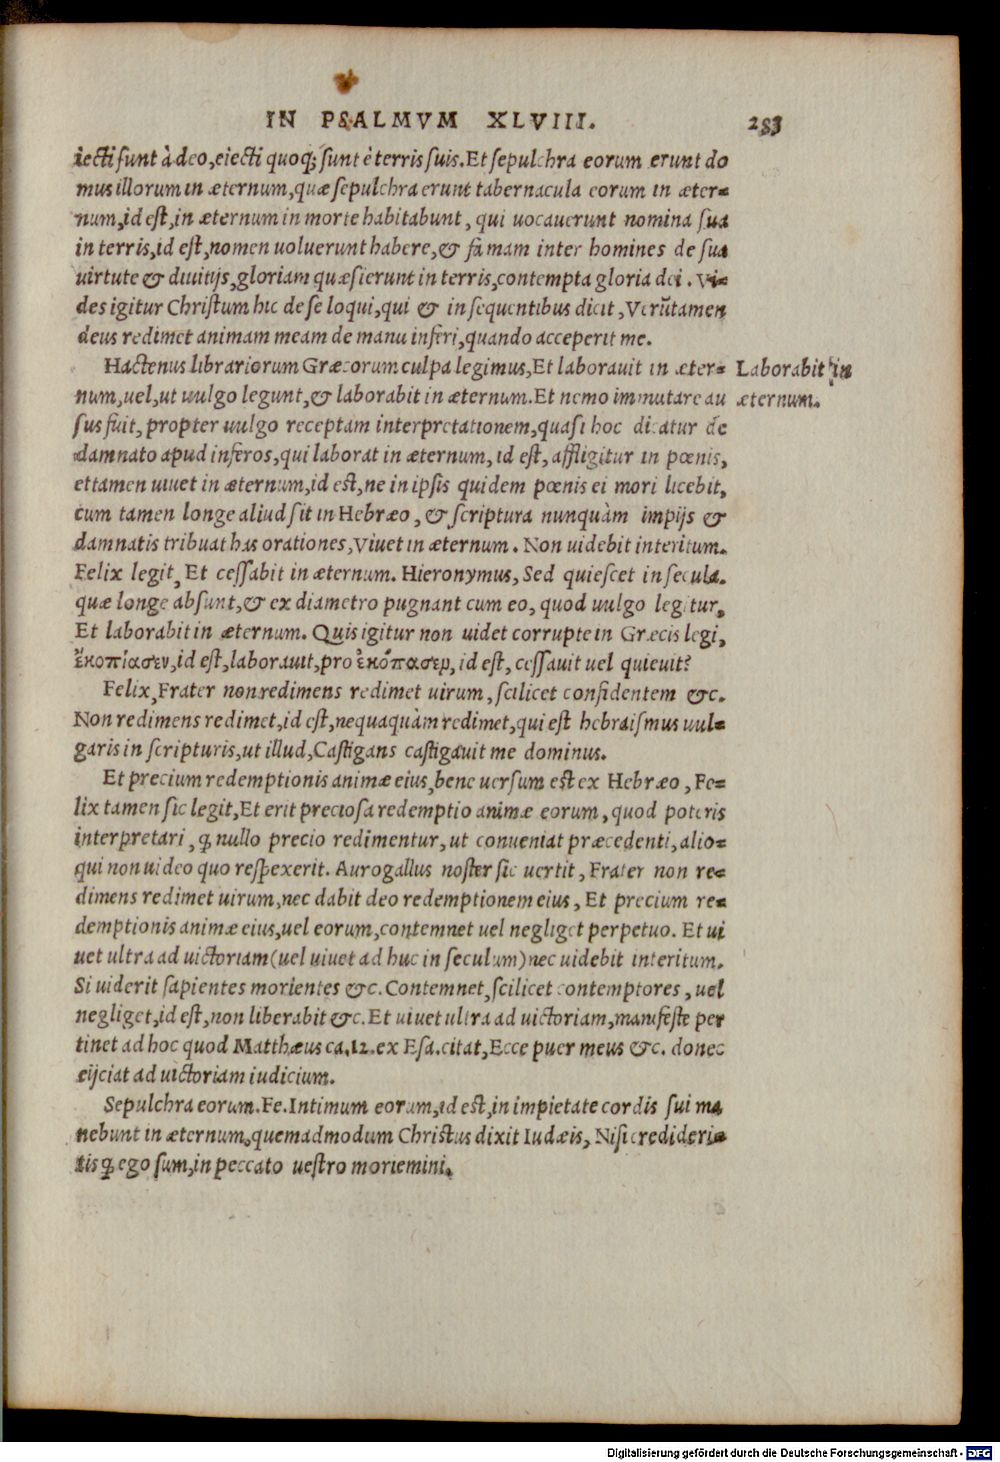 IN PSALMVM XLVIII. 283
iecti sunt à deo, eiecti quoq; sunt è terris suis. Et sepulchra eorum erunt do
mus illorum in æternum, quæ sepulchra erunt tabernacula eorum in æter=
num, id est, in æternum in morte habitabunt, qui uocauerunt nomina sua
in terris, id est, nomen uoluerunt habere, & famam inter homines de sua
uirtute & diuitijs, gloriam quæsierunt in terris, contempta gloria dei. Vi=
des igitur Christum hic de se loqui, qui & in sequentibus dicit, Verūtamen
deus redimet animam meam de manu inferi, quando acceperit me.
Hactenus librariorum Græcorum culpa legimus, Et laborauit in æter= Laborabit in
num, uel, ut uulgo legunt, & laborabit in æternum. Et nemo immutare au æternum.
sus fuit, propter uulgo receptam interpretationem, quasi hoc dicatur de
damnato apud inferos, qui laborat in æternum, id est, affligitur in pœnis,
et tamen uiuet in æternum, id est, ne in ipsis quidem pœnis ei mori licebit,
cum tamen longe aliud sit in Hebræo, & scriptura nunquàm impijs &
damnatis tribuat has orationes, Viuet in æternum. Non uidebit interitum.
Felix legit, Et cessabit in æternum. Hieronymus, Sed quiescet in secula.
quæ longe absunt, & ex diametro pugnant cum eo, quod uulgo legitur,
Et laborabit in æternum. Quis igitur non uidet corrupte in Græcis legi,
ἐκοπίασεν, id est, laborauit, pro ἐκόπασεν, id est, cessauit uel quieuit?
Felix, Frater non redimens redimet uirum, scilicet confidentem &c.
Non redimens redimet, id est, nequaquàm redimet, qui est hebraismus uul=
garis in scripturis, ut illud, Castigans castigauit me dominus.
Et precium redemptionis animæ eius, bene uersum est ex Hebræo, Fe=
lix tamen sic legit, Et erit preciosa redemptio animæ eorum, quod poteris
interpretari, ꝙ nullo precio redimentur, ut conueniat præcedenti, alio=
qui non uideo quo respexerit. Aurogallus noster sic uertit, Frater non re=
dimens redimet uirum, nec dabit deo redemptionem eius, Et precium re=
demptionis animæ eius, uel eorum, contemnet uel negliget perpetuo. Et ui
uet ultra ad uictoriam (uel uiuet ad huc in seculum) nec uidebit interitum.
Si uiderit sapientes morientes &c. Contemnet, scilicet contemptores, uel
negliget, id est, non liberabit &c. Et uiuet ultra ad uictoriam, manifeste per
tinet ad hoc quod Matthæus ca. 12. ex Esa. citat, Ecce puer meus &c. donec
eijciat ad uictoriam iudicium.
Sepulchra eorum. Fe. Intimum eorum, id est, in impietate cordis sui ma
nebunt in æternum, quemadmodum Christus dixit Iudæis, Nisi credideri=
tis ꝙ ego sum, in peccato uestro moriemini.
Digitalisierung gefördert durch die Deutsche Forschungsgemeinschaft - DFG